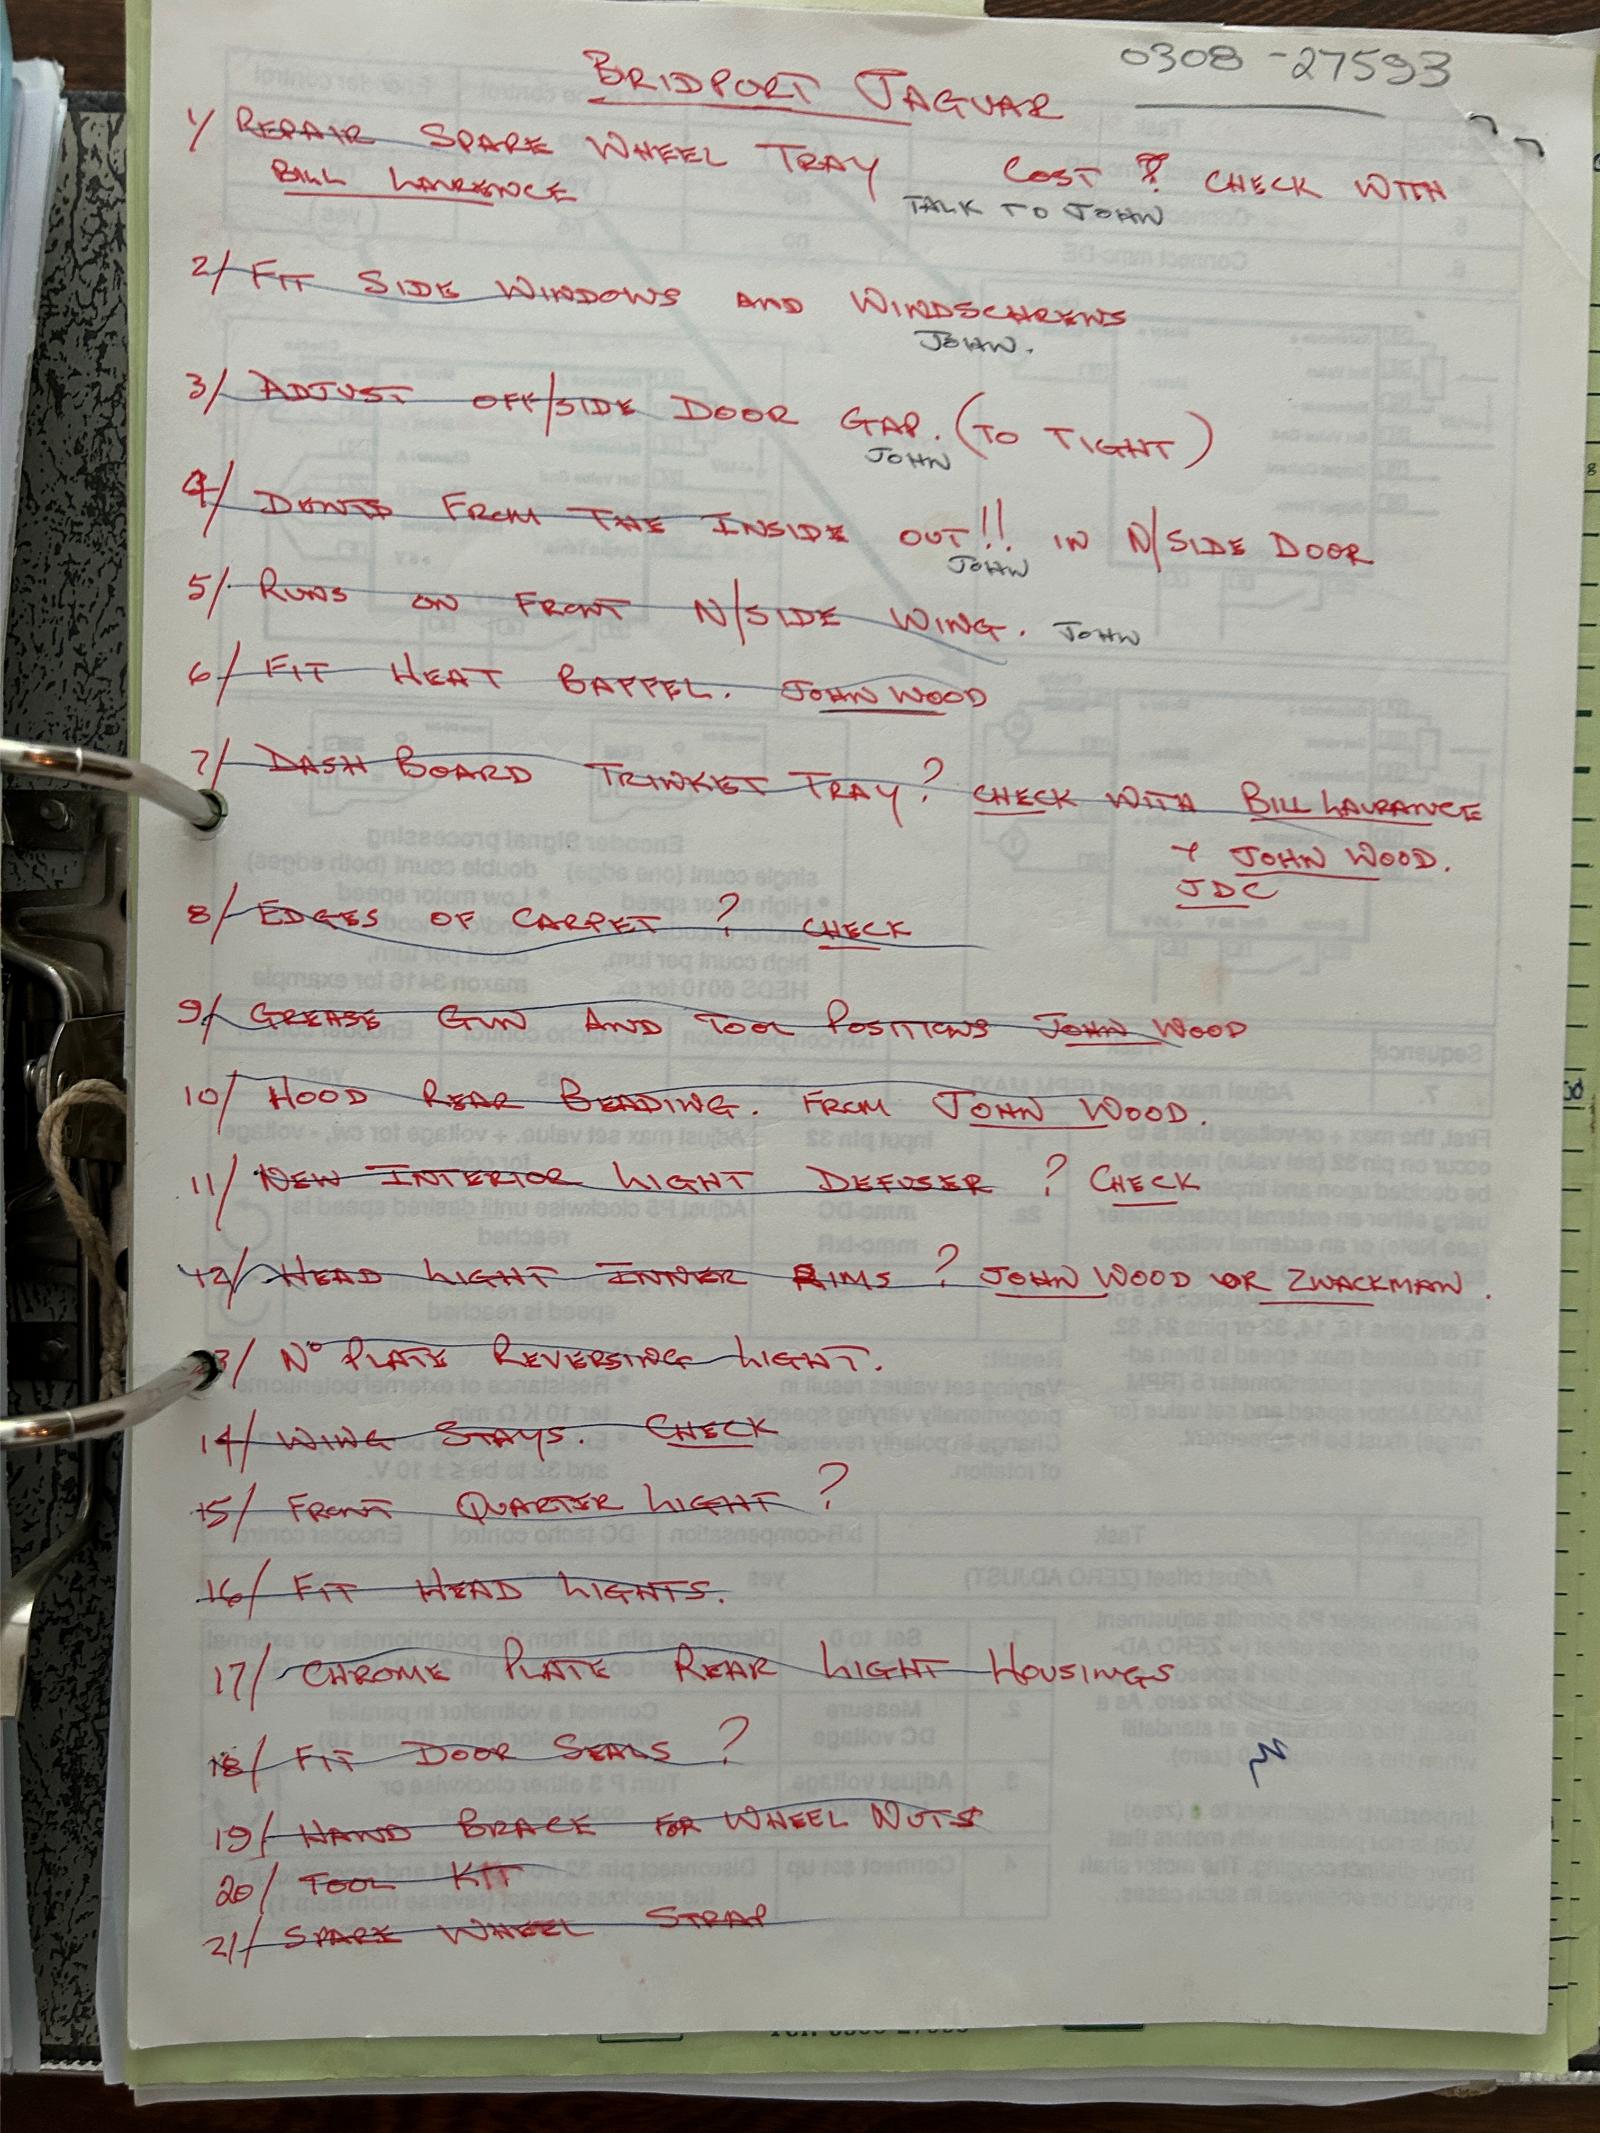 BRIDPORT JAGUAR 0308-27593
1/ REPAIR SPARE WHEEL TRAY COST ? CHECK WITH
BILL LAURENCE TALK TO JOHN
2/ FIT SIDE WINDOWS AND WINDSCREWNS
JOHN.
3/ ADJUST OFF/SIDE DOOR GAP. (TO TIGHT)
JOHN
4/ DENTS FROM THE INSIDE OUT!! IN N/SIDE DOOR
JOHN
5/ RUNS ON FRONT N/SIDE WING. JOHN
6/ FIT HEAT BAFFEL. JOHN WOOD
7/ DASH BOARD TRINKET TRAY? CHECK WITH BILL LAURANCE
+ JOHN WOOD.
JDC
8/ EDGES OF CARPET ? CHECK
9/ GREASE GUN AND TOOL POSITIONS JOHN WOOD
10/ HOOD REAR BEADING. FROM JOHN WOOD.
11/ NEW INTERIOR LIGHT DEFUSER ? CHECK
12/ HEAD LIGHT INNER RIMS ? JOHN WOOD OR ZWACKMAN.
13/ Nº PLATE REVERSING LIGHT.
14/ WING STAYS. CHECK
15/ FRONT QUARTER LIGHT ?
16/ FIT HEAD LIGHTS.
17/ CHROME PLATE REAR LIGHT HOUSINGS
18/ FIT DOOR SEALS ?
19/ HAND BRACE FOR WHEEL NUTS
20/ TOOL KIT
21/ SPARE WHEEL STRAP